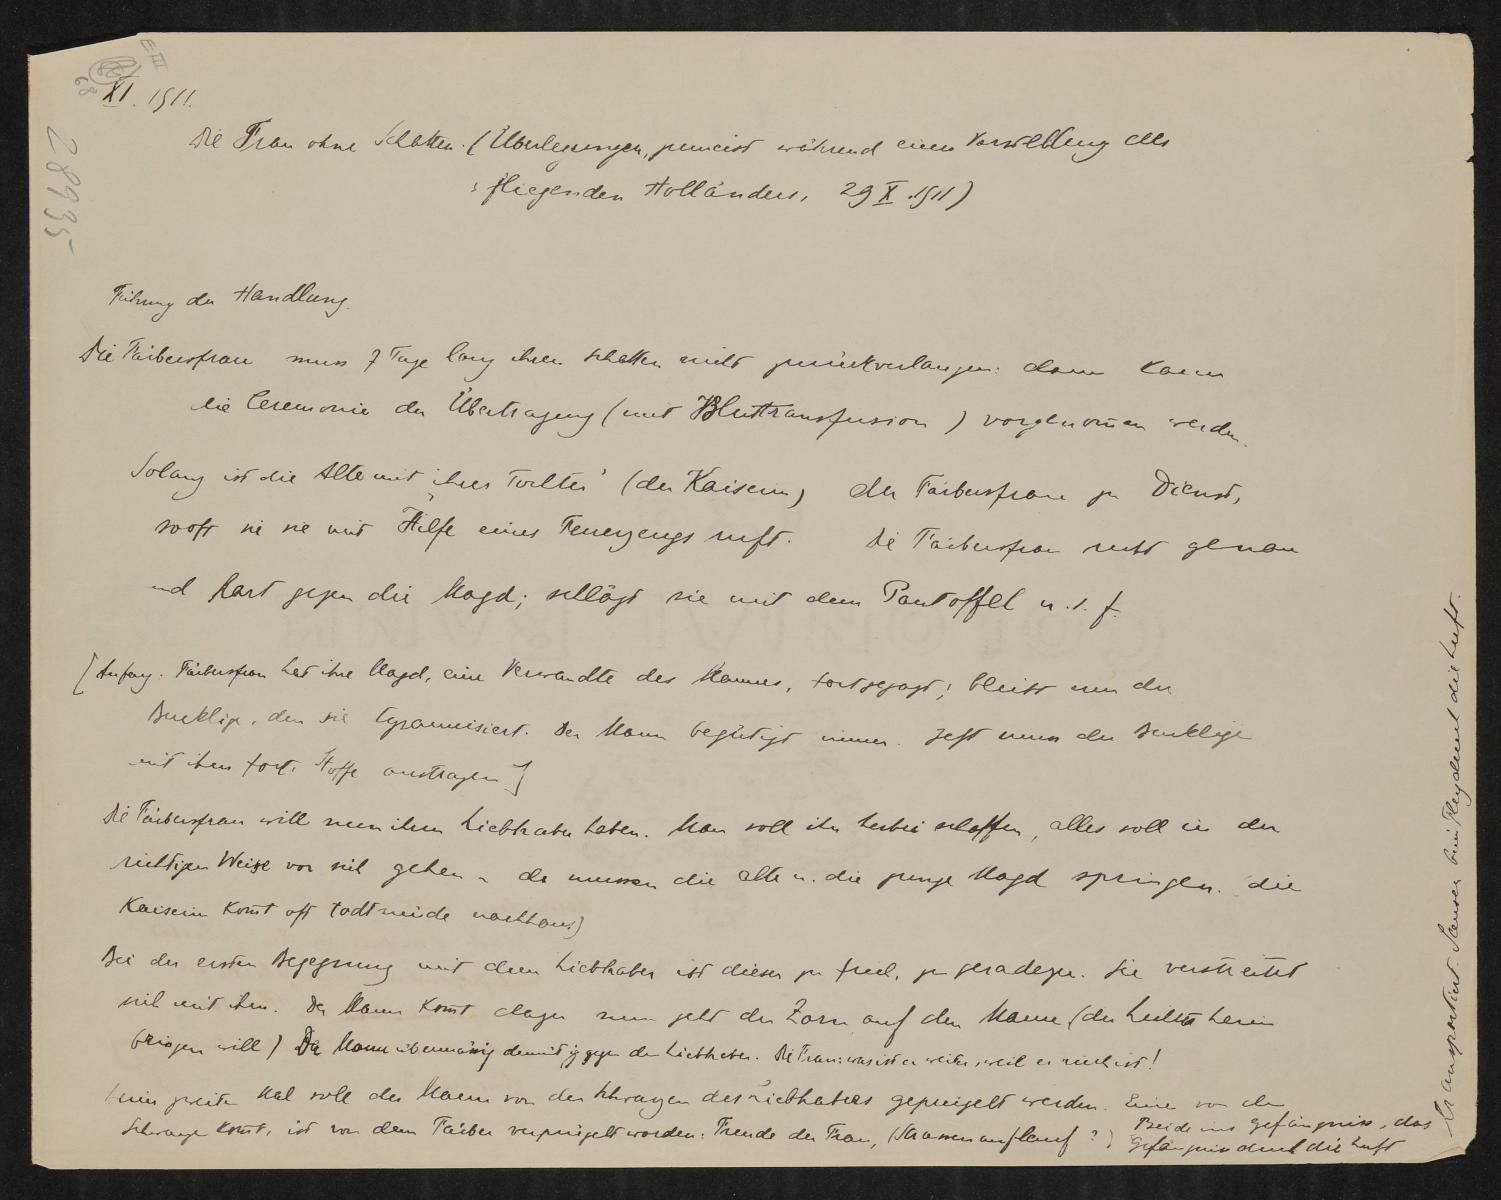 E III
68
XI. 1911.
28935
Die Frau ohne Schatten. (Überlegungen, zumeist während einer Vorstellung des
fliegenden Holländers, 29 X. 1911)
Führung der Handlung.
Die Färbersfrau muss 7 Tage lang ihren Schatten nicht zurückverlangen: dann kann
die Ceremonie der Übertragung (mit Bluttransfusion) vorgenom̄en werden.
Solang ist die Alte mit „ihrer Tochter" (der Kaiserin) der Färbersfrau zu Dienst,
sooft sie sie mit Hilfe eines Feuerzeugs ruft. Die Färbersfrau recht genau
und hart gegen die Magd; schlägt sie mit dem Pantoffel u. s. f.
[Anfang. Färbersfrau hat ihre Magd, eine Verwandte des Mannes, fortgejagt; bleibt nun der
Bucklige, den sie tyrannisiert. Der Mann begütigt immer. Jetzt muss der Bucklige
mit ihm fort, Stoffe austragen]
Die Färbersfrau will nun ihren Liebhaber haben. Man soll ihn herbei schaffen, alles soll in der
richtigen Weise vor sich gehen – da mussen die alte u. die junge Magd springen. (die
Kaiserin kom̄t oft todtmüde nachhaus)
Bei der ersten Begegnung mit dem Liebhaber ist dieser zu frech, zu geradezu. Sie verstreitet
sich mit ihm. Der Mann kom̄t dazu nun geht der Zorn auf den Mann (der herein
bringen will) Der Mann übermässig demütig gegen den Liebhaber. Die Frau: was ist er weiter, weil er reich ist!
Beim zweiten Mal soll der Mann von den Schwarzen des Liebhabers geprügelt werden. Einer von den
Schwarzen kom̄t, ist von dem Färber verprügelt worden: Freude der Frau, (Strassenauflauf?)
Beide ins Gefängniss, das
Gefängnis durch die Luft
transportiert. Sausen beim Flug durch die Luft.